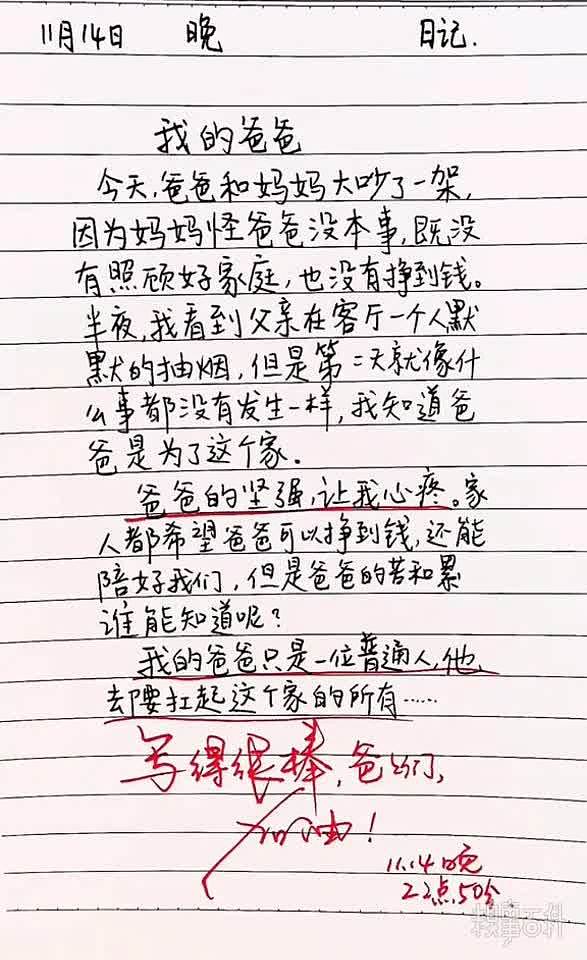 11月14日 晚 日记.
我的爸爸
今天,爸爸和妈妈大吵了一架,
因为妈妈怪爸爸没本事,既没
有照顾好家庭,也没有挣到钱。
半夜,我看到父亲在客厅一个人默
默的抽烟,但是第二天就像什
么事都没有发生一样,我知道爸
爸是为了这个家.
爸爸的坚强,让我心疼。家
人都希望爸爸可以挣到钱,还能
陪好我们,但是爸爸的苦和累
谁能知道呢?
我的爸爸只是一位普通人,他
却要扛起这个家的所有……
写得很棒,爸爸们,
加油!
11.14晚
22点50分